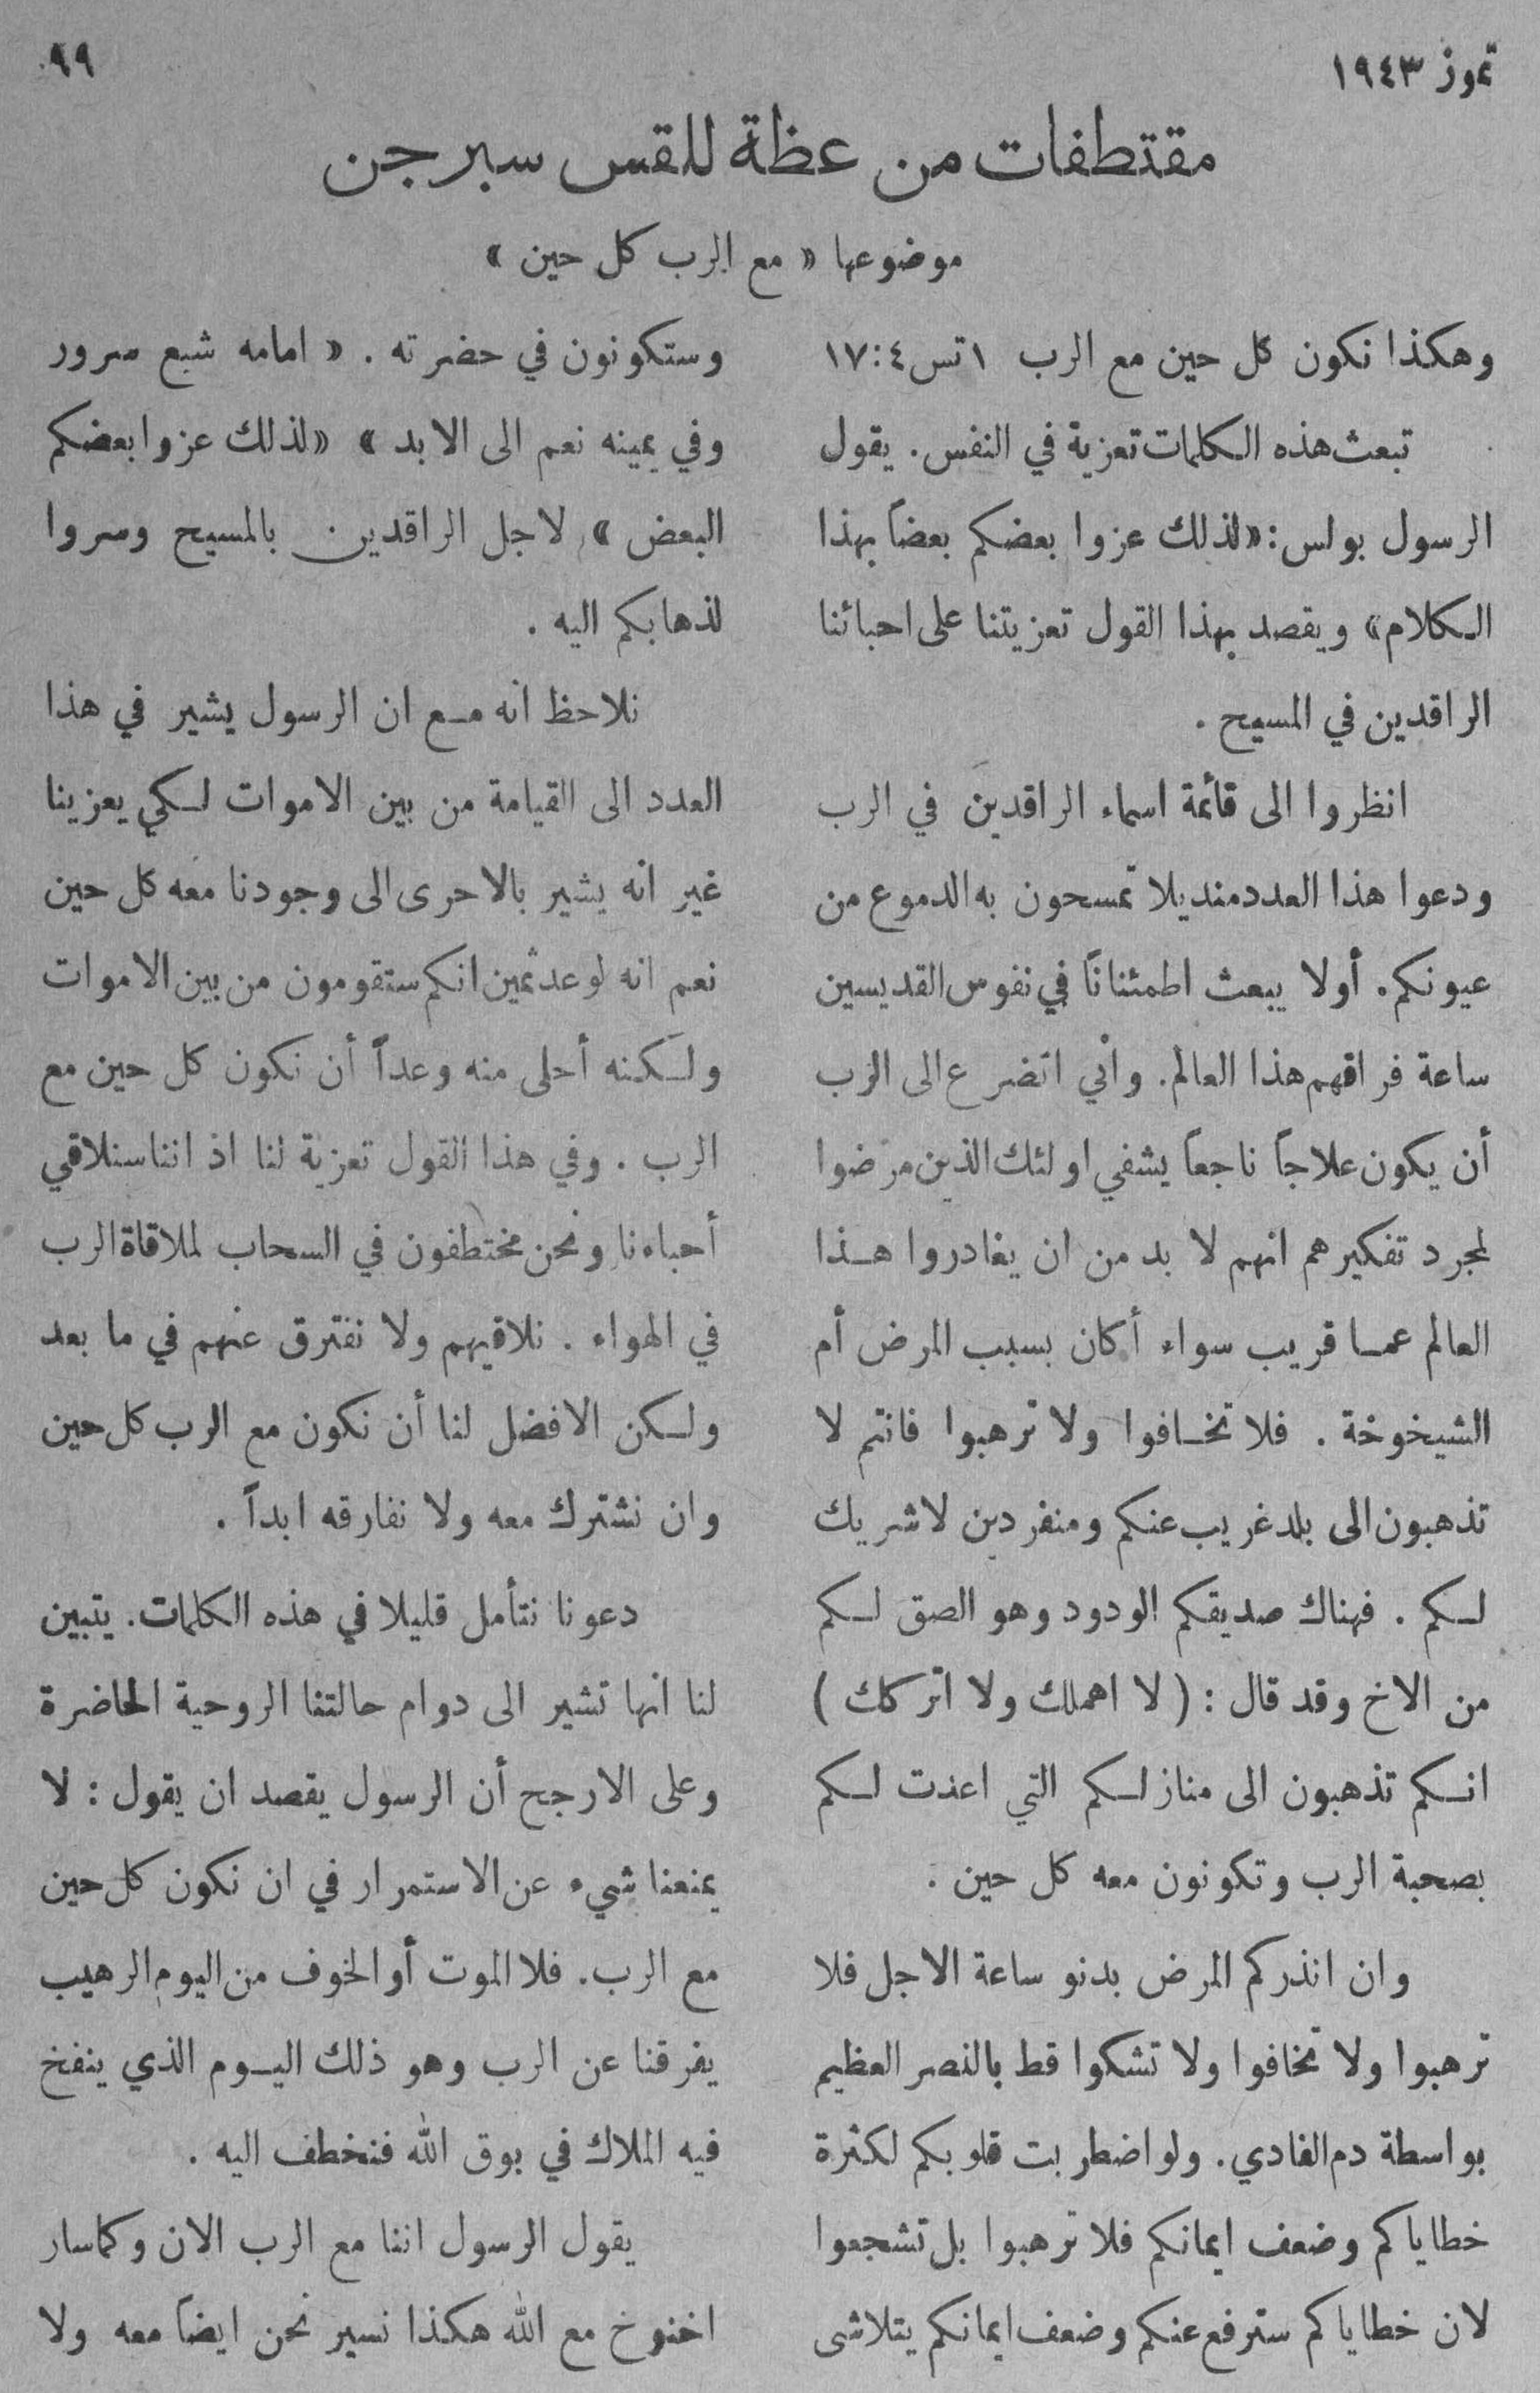 تموز ١٩٤٣
٩٩
مقتطفات من عظة للقس سبرجن
موضوعها « مع الرب كل حين »
وهكذا نكون كل حين مع الرب ١ تس ٤:١٧
تبعث هذه الكلمات تعزية في النفس. يقول
الرسول بولس: «لذلك عزوا بعضكم بعضاً بهذا
الكلام» ويقصد بهذا القول تعزيتنا على احبائنا
الراقدين في المسيح .
انظروا الى قائمة اسماء الراقدين في الرب
ودعوا هذا العدد منديلا تمسحون به الدموع من
عيونكم. أولا يبعث اطمئناناً في نفوس القديسين
ساعة فراقهم هذا العالم. واني اتضرع الى الرب
أن يكون علاجاً ناجعاً يشفي اولئك الذين مرضوا
لمجرد تفكيرهم انهم لا بد من ان يغادروا هذا
العالم عما قريب سواء أكان بسبب المرض أم
الشيخوخة . فلا تخافوا ولا ترهبوا فانتم لا
تذهبون الى بلد غريب عنكم ومنفردين لا شريك
لكم . فهناك صديقكم الودود وهو الصق لكم
من الاخ وقد قال : ( لا اهملك ولا اتركك )
انكم تذهبون الى منازلكم التي اعدت لكم
بصحبة الرب وتكونون معه كل حين .
وان انذركم المرض بدنو ساعة الاجل فلا
ترهبوا ولا تخافوا ولا تشكوا قط بالنصر العظيم
بواسطة دم الفادي. ولو اضطربت قلوبكم لكثرة
خطاياكم وضعف ايمانكم فلا ترهبوا بل تشجعوا
لان خطاياكم سترفع عنكم وضعف ايمانكم يتلاشى
وستكونون في حضرته . « امامه شبع سرور
وفي يمينه نعم الى الابد » «لذلك عزوا بعضكم
البعض » لاجل الراقدين بالمسيح وسروا
لذهابكم اليه .
نلاحظ انه مع ان الرسول يشير في هذا
العدد الى القيامة من بين الاموات لكي يعزينا
غير انه يشير بالاحرى الى وجودنا معه كل حين
نعم انه لوعد ثمين انكم ستقومون من بين الاموات
ولكنه أحلى منه وعداً أن نكون كل حين مع
الرب . وفي هذا القول تعزية لنا اذ اننا سنلاقي
أحباءنا ونحن مختطفون في السحاب لملاقاة الرب
في الهواء . نلاقيهم ولا نفترق عنهم في ما بعد
ولكن الافضل لنا أن نكون مع الرب كل حين
وان نشترك معه ولا نفارقه ابداً .
دعونا نتأمل قليلا في هذه الكلمات. يتبين
لنا انها تشير الى دوام حالتنا الروحية الحاضرة
وعلى الارجح أن الرسول يقصد ان يقول : لا
يمنعنا شيء عن الاستمرار في ان نكون كل حين
مع الرب. فلا الموت أو الخوف من اليوم الرهيب
يفرقنا عن الرب وهو ذلك اليوم الذي ينفخ
فيه الملاك في بوق الله فنخطف اليه .
يقول الرسول اننا مع الرب الان وكما سار
اخنوخ مع الله هكذا نسير نحن ايضاً معه ولا